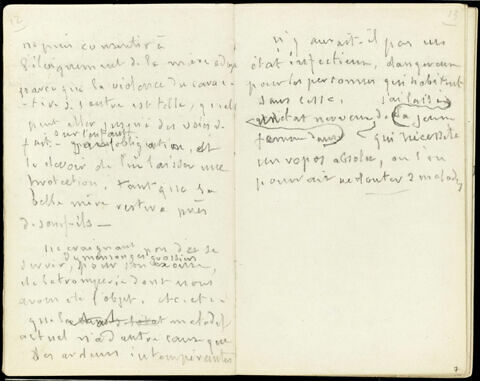 12
ne puis consentir à
l'éloignement de la mère
parce que la violence du carac-
tère de l'autre est telle, qu'elle
peut aller jusqu'à des voies de
sur l'enfant
fait - obligation, et
le devoir de lui laisser une
protection. Tant que sa
belle mère restera près
de son fils -
Ne craignant pas de se
servir, du mensonge grossier
pour son
de la tromperie dont nous
avons été l'objet. etc. et
que la maladie
actuel n'a d'autre cause que
des ardeurs intempérantes
13
n'y aurait-il pas un
état infectieux, dangereux
pour les personnes qui habitent
sans cesse.
état nerveux de la jeune
femme dans qui nécessite
un repos absolu, ou l'on
pourrait redouter 2 malades
7